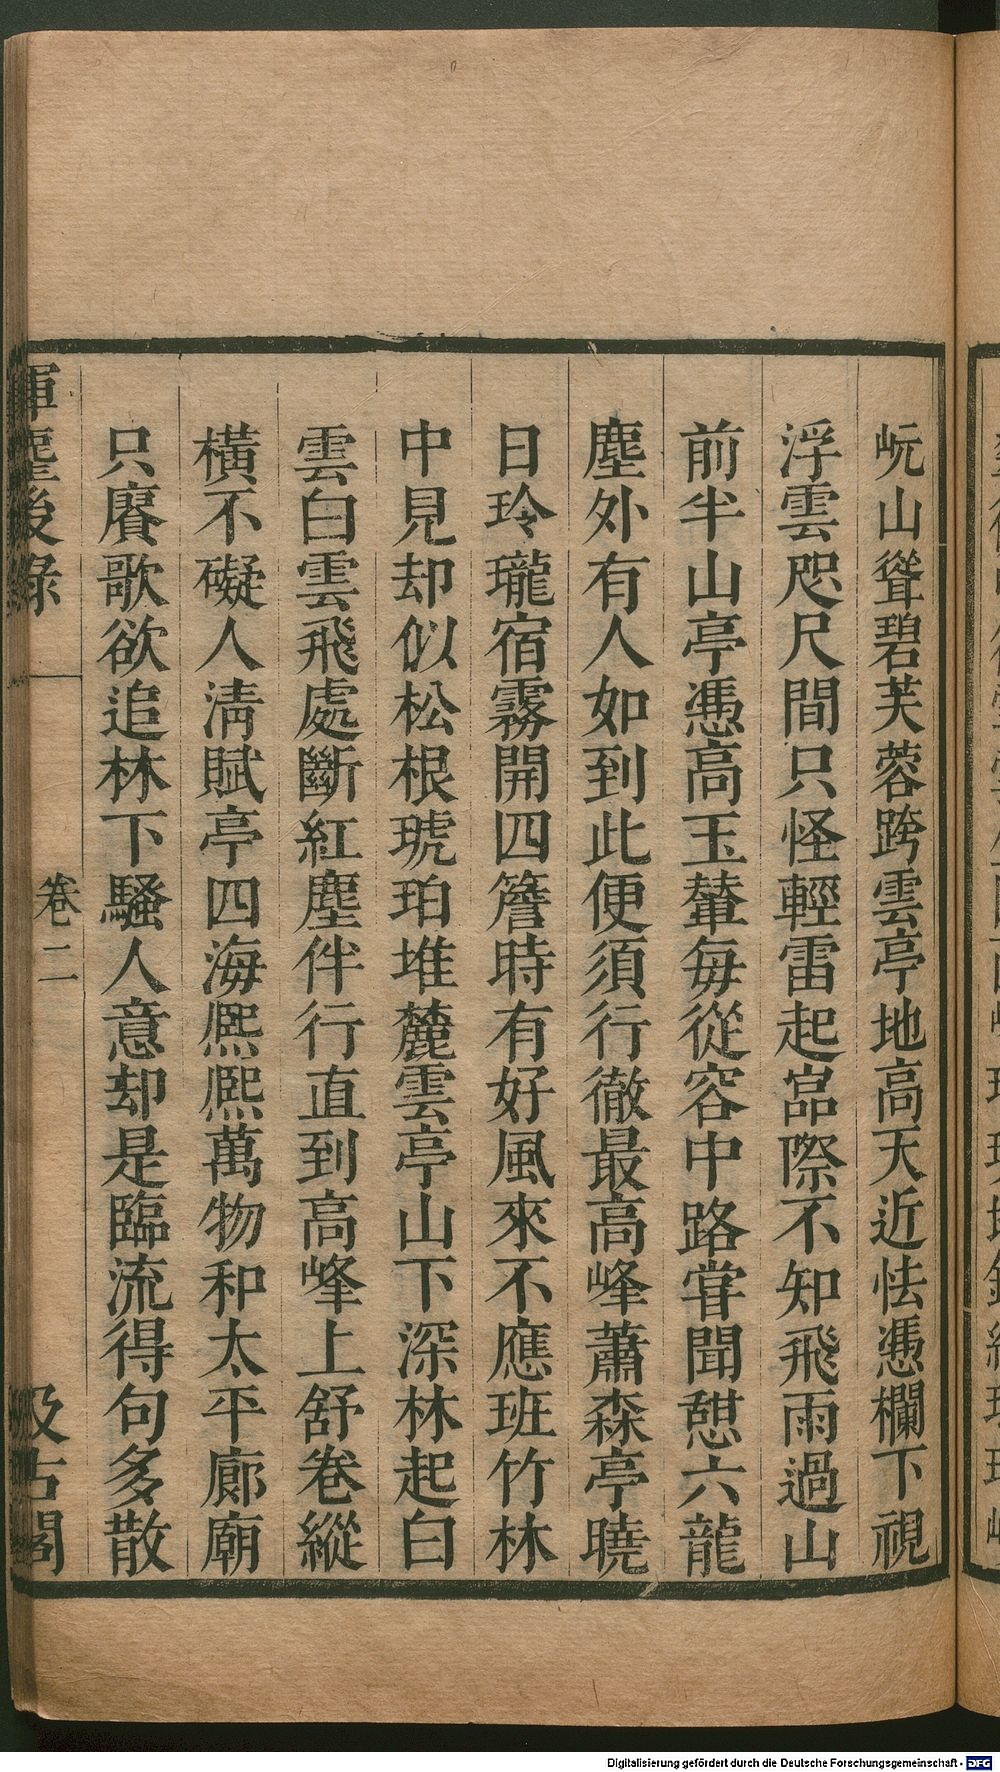 岏山聳碧芙蓉跨雲亭地高天近怯憑欄下視
浮雲咫尺間只怪輕雷起嵓際不知飛雨過山
前半山亭憑高玉輦每從容中路嘗聞憇六龍
塵外有人如到此便須行徹最高峰蕭森亭曉
日玲瓏宿霧開四簷時有好風來不應班竹林
中見却似松根琥珀堆麓雲亭山下深林起白
雲白雲飛處斷紅塵伴行直到高峰上舒卷縱
橫不礙人清賦亭四海熈熈萬物和太平廊廟
只賡歌欲追林下騷人意却是臨流得句多散
揮麈後錄
卷二
汲古閣
Digitalisierung gefördert durch die Deutsche Forschungsgemeinschaft - DFG